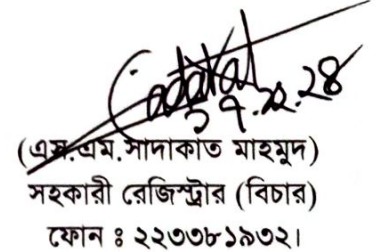 Sadakat
১৭.১২.২৪
(এস.এম.সাদাকাত মাহমুদ)
সহকারী রেজিস্ট্রার (বিচার)
ফোন ঃ ২২৩৩৮১৯৩২।